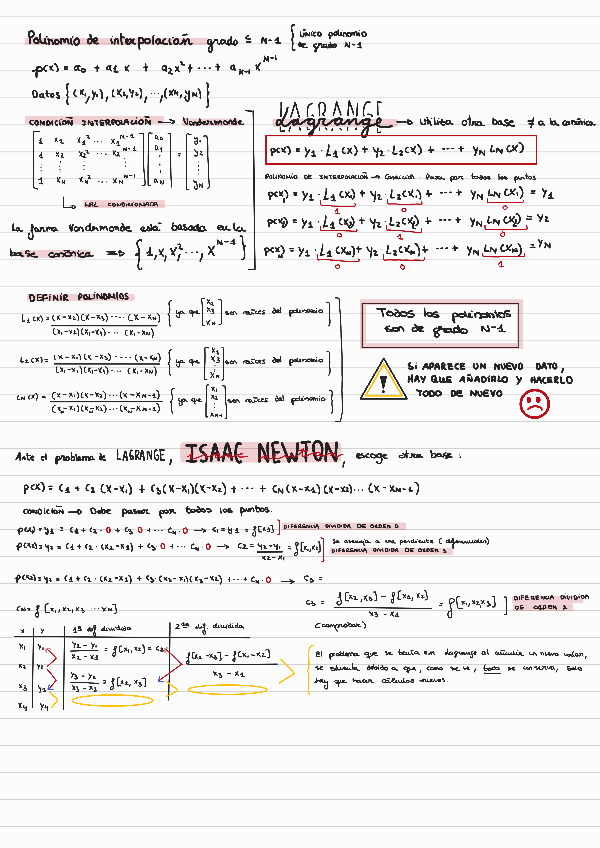 Polinomio de interpolación grado ≤ N-1 { único polinomio de grado N-1
p(x) = a₀ + a₁x + a₂x² + ··· + a_{N-1} x^{N-1}
Datos {(x₁,y₁), (x₂,y₂), ..., (x_N, y_N)}
CONDICIÓN INTERPOLACIÓN → Vandermonde
[1 x₁ x₁² ... x₁^{N-1}] [a₀] = [y₁]
[1 x₂ x₂² ... x₂^{N-1}] [a₁] = [y₂]
[1 x_N x_N² ... x_N^{N-1}] [a_N] = [y_N]
↳ MAL CONDICIONADA
La forma Vandermonde está basada en la
base canónica ⇒ {1, x, x², ..., x^{N-1}}
LAGRANGE
Lagrange → Utiliza otra base ≠ a la canónica.
p(x) = y₁·L₁(x) + y₂·L₂(x) + ··· + y_N L_N(x)
POLINOMIO DE INTERPOLACIÓN → Condición: Pasa por todos los puntos
p(x₁) = y₁·L₁(x₁) + y₂·L₂(x₁) + ··· + y_N L_N(x₁) = y₁
1 0 0
p(x₂) = y₁·L₁(x₂) + y₂·L₂(x₂) + ··· + y_N L_N(x₂) = y₂
0 1 0
p(x_N) = y₁·L₁(x_N) + y₂·L₂(x_N) + ··· + y_N L_N(x_N) = y_N
0 0 1
DEFINIR POLINOMIOS
L₁(x) = (x-x₂)(x-x₃)·····(x-x_N) / (x₁-x₂)(x₁-x₃)···(x₁-x_N) { ya que [x₂ x₃ ⋮ x_N] son raíces del polinomio }
L₂(x) = (x-x₁)(x-x₃)·····(x-x_N) / (x₁-x₁)(x₁-x₃)···(x₁-x_N) { ya que [x₁ x₃ ⋮ x_N] son raíces del polinomio }
L_N(x) = (x-x₁)(x-x₂)···(x-x_{N-1}) / (x_N-x₁)(x_N-x₂)···(x_N-x_{N-1}) { ya que [x₁ x₂ ⋮] son raíces del polinomio }
Todos los polinomios
son de grado N-1
! SI APARECE UN NUEVO DATO,
HAY QUE AÑADIRLO Y HACERLO
TODO DE NUEVO
Ante el problema de LAGRANGE, ISAAC NEWTON, escoge otra base:
p(x) = c₁ + c₂(x-x₁) + c₃(x-x₁)(x-x₂) + ··· + c_N(x-x₁)(x-x₂)···(x-x_{N-1})
CONDICIÓN → Debe pasar por todos los puntos.
p(x₁) = y₁ = c₁ + c₂·0 + c₃·0 + ··· c_N·0 → c₁ = y₁ = f[x₁] ] DIFERENCIA DIVIDIDA DE ORDEN 0
p(x₂) = y₂ = c₁ + c₂·(x₂-x₁) + c₃·0 + ··· c_N·0 → c₂ = (y₂-y₁)/(x₂-x₁) = f[x₁,x₂] ] Se asemeja a una pendiente (diferenciales)
DIFERENCIA DIVIDIDA DE ORDEN 1
p(x₃) = y₃ = c₁ + c₂·(x₃-x₁) + c₃·(x₃-x₁)(x₃-x₂) + ··· c_N·0 → c₃ =
c₃ = (f[x₂,x₃] - f[x₁,x₂]) / (x₃-x₁) = f[x₁,x₂,x₃] ] DIFERENCIA DIVIDIDA DE ORDEN 2
(comprobar)
c_N = f[x₁,x₂,x₃ ··· x_N]
x y 1ª dif dividida 2ª dif. dividida
x₁ y₁ (y₂-y₁)/(x₂-x₁) = f[x₁,x₂] = c₂ (f[x₂,x₃] - f[x₁,x₂])/(x₃-x₁)
x₂ y₂
x₃ y₃ (y₃-y₂)/(x₃-x₂) = f[x₂,x₃]
x₄ y₄
El problema que se tenía con Lagrange al añadir un nuevo valor,
se elimina debido a que, como se ve, todo se conserva, solo
hay que hacer cálculos nuevos.